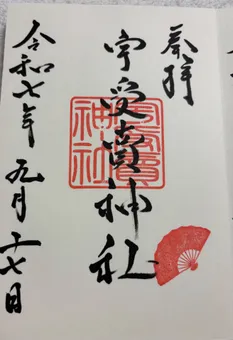 奉拝
宇受賣神社
宇受賣
神社
令和七年九月二十七日